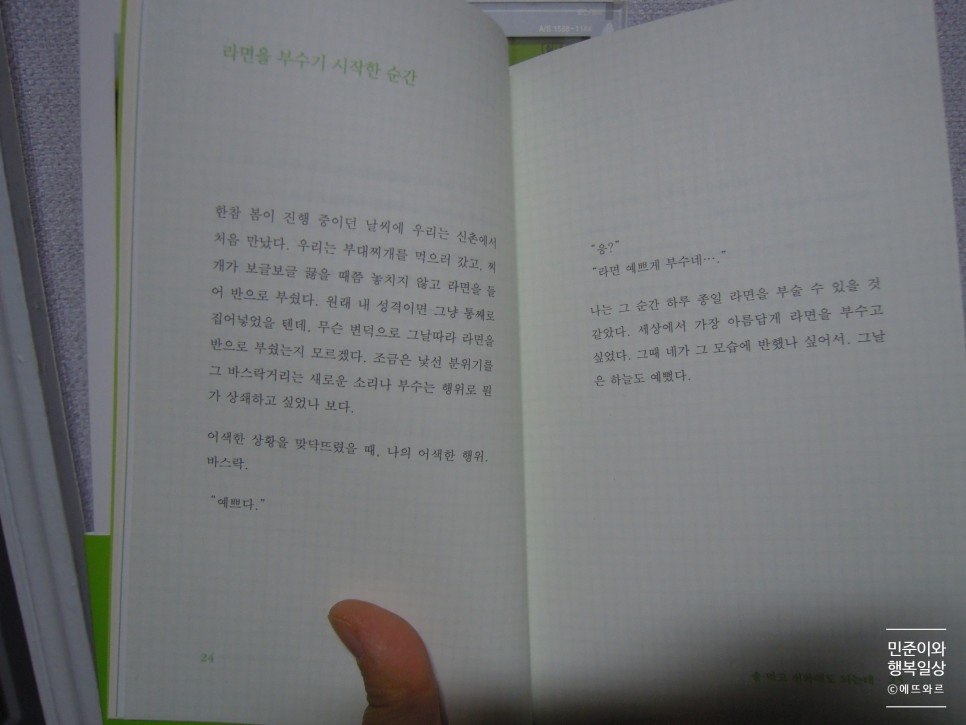 A/S 1588-
라면을 부수기 시작한 순간
한참 봄이 진행 중이던 날씨에 우리는 신촌에서
처음 만났다. 우리는 부대찌개를 먹으러 갔고, 찌
개가 보글보글 끓을 때쯤 놓치지 않고 라면을 들
어 반으로 부쉈다. 원래 내 성격이면 그냥 통째로
집어넣었을 텐데, 무슨 변덕으로 그날따라 라면을
반으로 부쉈는지 모르겠다. 조금은 낯선 분위기를
그 바스락거리는 새로운 소리나 부수는 행위로 뭔
가 상쇄하고 싶었나 보다.
어색한 상황을 맞닥뜨렸을 때, 나의 어색한 행위.
바스락.
“예쁘다.”
24
“응?”
“라면 예쁘게 부수네….”
나는 그 순간 하루 종일 라면을 부술 수 있을 것
같았다. 세상에서 가장 아름답게 라면을 부수고
싶었다. 그때 네가 그 모습에 반했나 싶어서. 그날
은 하늘도 예뻤다.
민준이와
행복일상
©에뜨와르